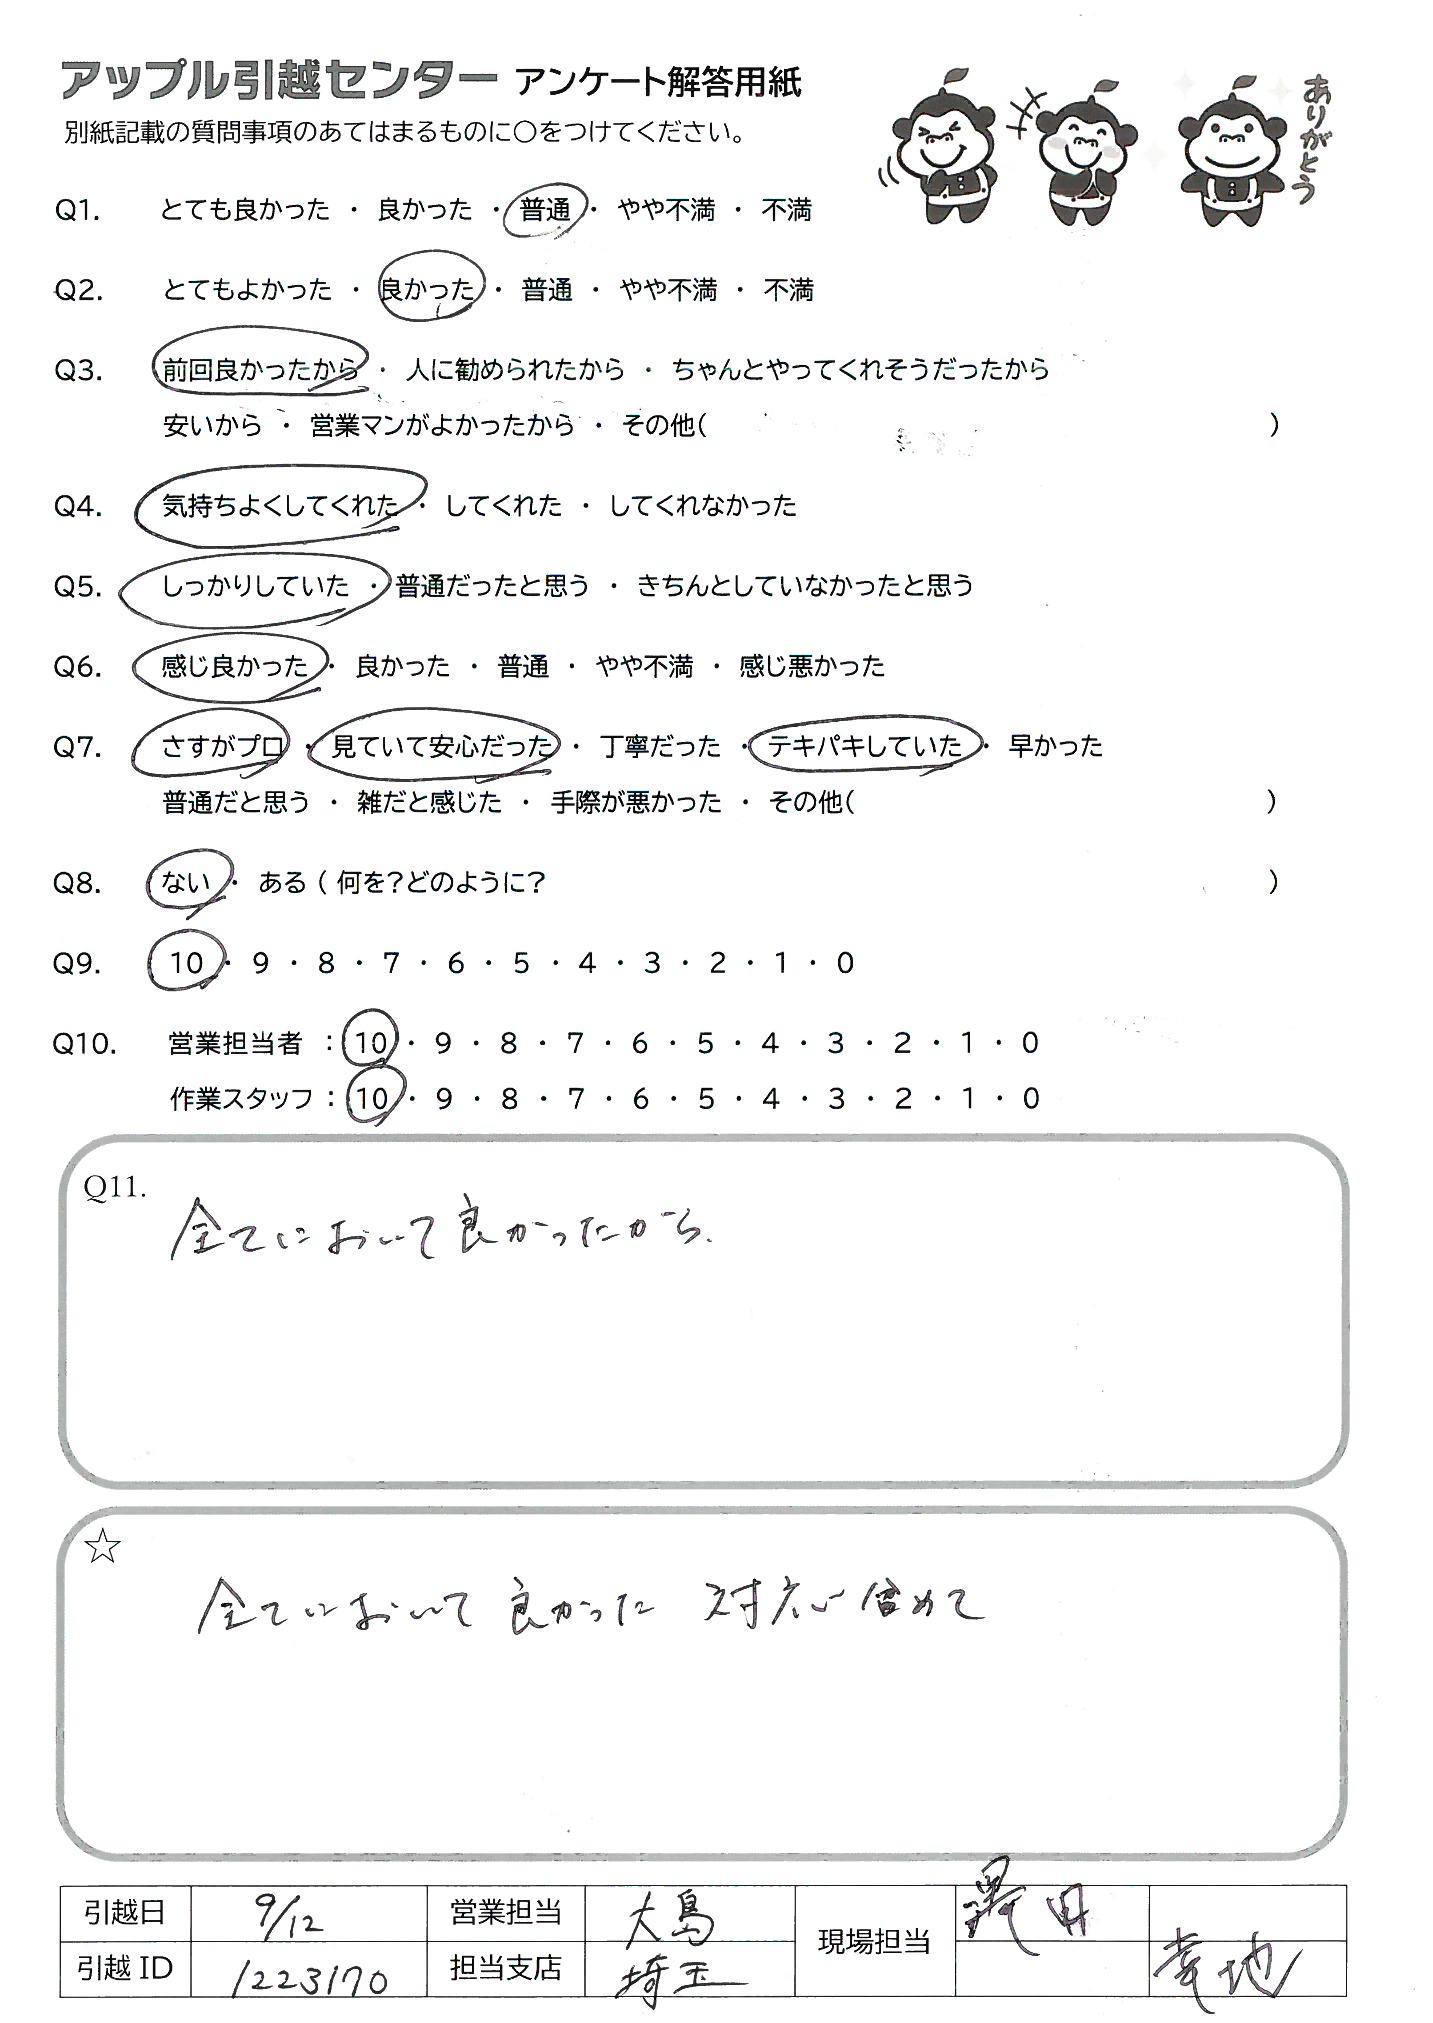 アップル引越センター アンケート解答用紙
別紙記載の質問事項のあてはまるものに○をつけてください。
ありがとう
Q1. とても良かった ・ 良かった ・ 普通 ・ やや不満 ・ 不満
Q2. とてもよかった ・ 良かった ・ 普通 ・ やや不満 ・ 不満
Q3. 前回良かったから ・ 人に勧められたから ・ ちゃんとやってくれそうだったから
安いから ・ 営業マンがよかったから ・ その他( )
Q4. 気持ちよくしてくれた ・ してくれた ・ してくれなかった
Q5. しっかりしていた ・ 普通だったと思う ・ きちんとしていなかったと思う
Q6. 感じ良かった ・ 良かった ・ 普通 ・ やや不満 ・ 感じ悪かった
Q7. さすがプロ ・ 見ていて安心だった ・ 丁寧だった ・ テキパキしていた ・ 早かった
普通だと思う ・ 雑だと感じた ・ 手際が悪かった ・ その他( )
Q8. ない ・ ある ( 何を?どのように? )
Q9. 10 ・ 9 ・ 8 ・ 7 ・ 6 ・ 5 ・ 4 ・ 3 ・ 2 ・ 1 ・ 0
Q10. 営業担当者 : 10 ・ 9 ・ 8 ・ 7 ・ 6 ・ 5 ・ 4 ・ 3 ・ 2 ・ 1 ・ 0
作業スタッフ : 10 ・ 9 ・ 8 ・ 7 ・ 6 ・ 5 ・ 4 ・ 3 ・ 2 ・ 1 ・ 0
Q11.
全てにおいて良かったから.
☆
全てにおいて良かった 対応含めて
引越日 9/12 営業担当 大島 現場担当
引越 ID 1223170 担当支店 埼玉 幸地